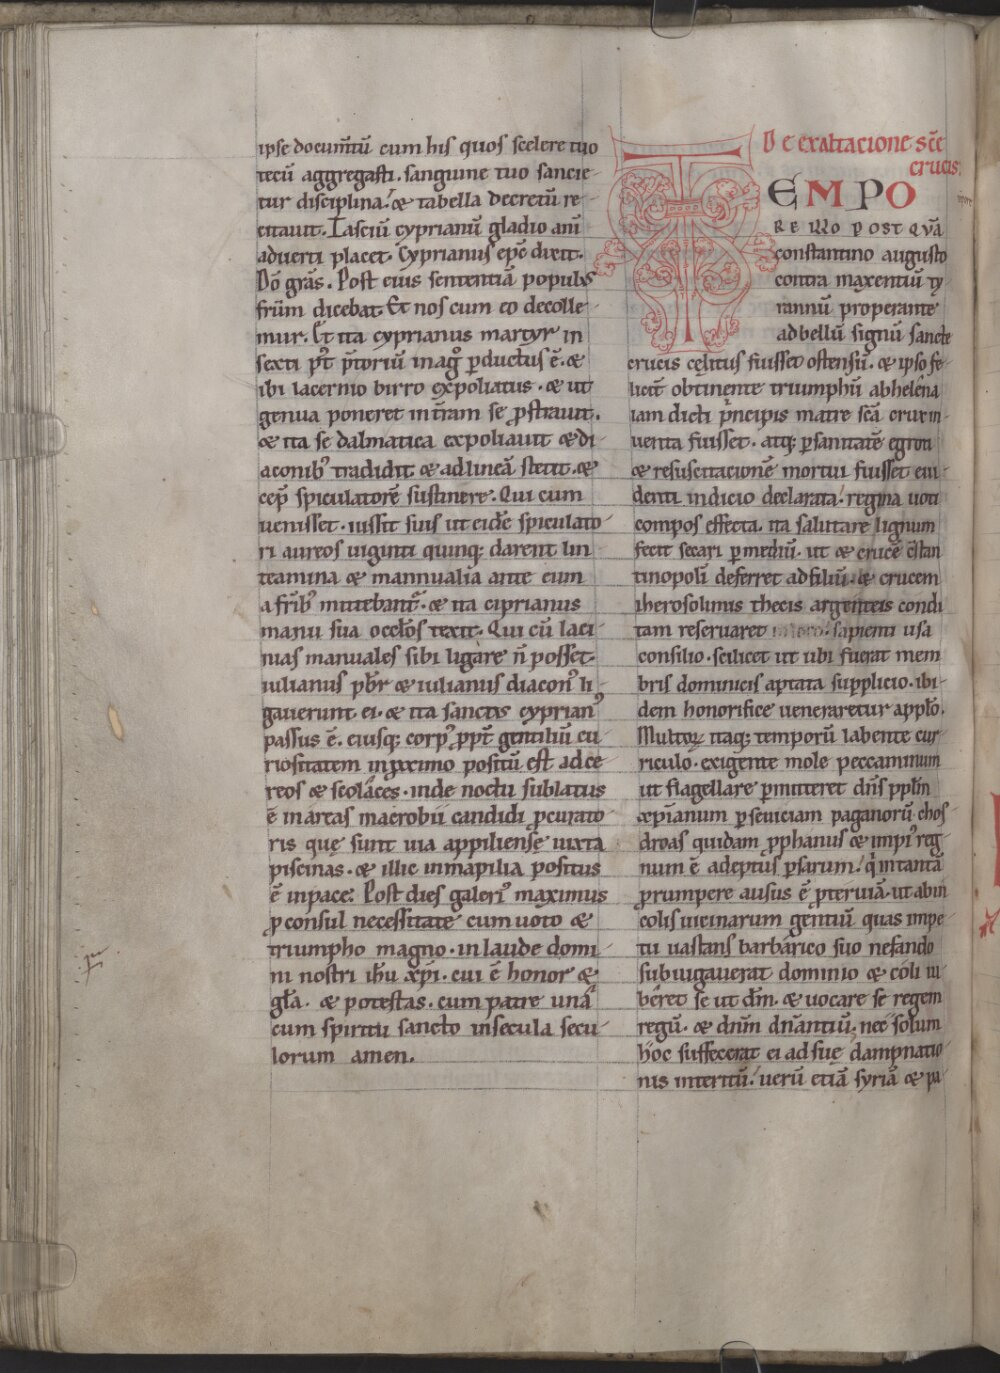 ipse documt̄ū cum his quos scelere tuo
tecū aggregasti. sanguine tuo sancie-
tur disciplina. & tabella decretū re-
citauit. Tasciū cyprianū gladio anī
aduerti placet. Cyprianus ep̄c dixit.
Dō grās. Post eius sententiā populus
fr̄um dicebat. Et nos cum eo decolle-
mur. Et ita cyprianus martyr in
secti p̄t p̄toriū inagꝰ ꝑductus ē. &
ibi lacerno birro expoliatus. & ut
genua poneret int̄ram se ꝓstrauit.
& ita se dalmatica expoliauit & di-
aconibꝰ tradidit & adlineā stetit. &
cep̄ spiculatorē sustinere. Qui cum
uenisset. iussit suis ut eidē spiculato-
ri aureos uiginti quinq; darent lin-
teamina & mannualia ante eum
a fr̄ibꝰ mittebant̄. & ita ciprianus
manu sua occl̄os texit. Qui cū laci-
nias manuales sibi ligare n̄ posset.
iulianus pb̄r & iulianus diaconꝰ li-
gauerunt ei. & ita sanctꝰ cyprianꝰ
passus ē. eiusq; corpꝰ ꝓpt̄ gentiliū cu-
riositatem inproximo positū est ad ce-
reos & scolāces. inde noctu sublatus
ē in areas macrobii candidi ꝓcurato-
ris quę sunt uia appiliensę iuxta
piscinas. & illic inmapilia positus
ē inpace. Post dies galeriꝰ maximus
ꝓconsul necessitate cum uoto &
triumpho magno. in laude domi-
ni nostri ih̄u xp̄i. cui ē honor &
gl̄a. & potestas. cum patre unā
cum spiritu sancto in secula secu-
lorum amen.
De exaltacione sc̄e
crucis.
TEMPO
RE ILLO POST QVĀ
constantino augusto
contra maxentiū ty-
rannū properante
ad bellū signū sancte
crucis cęlitus fuisset ostensū. & ipso fe-
licit̄ obtinente triumphū abhelena
iam dicti p̄ncipis matre sc̄a crux in-
uenta fuisset. atq; ꝑ sanitatē egroti
& resuscitacionē mortui fuisset eui-
denti indicio declarata. regina uoti
compos effecta. ita salutare lignum
fecit secari ꝑ mediū. ut & crucē c̄stan
tinopolī deferret ad filiū. & crucem
iherosolimis thecis argenteis condi
tam reseruaret sapienti usa
consilio. scilicet ut ubi fuerat mem
bris dominicis aptata supplicio. ibi-
dem honorifice ueneraretur appl̄o.
Multoꝝ itaq; temporū labente cur-
riculo. exigente mole peccaminum
ut flagellare ꝑmitteret dn̄s ppl̄m
xp̄ianum ꝑ seuiciam paganorū chos-
droas quidam ꝓphanus & impiꝰ reg-
num ē adeptus ꝑsarum. q̇ in tantā
ꝓrumpere ausus ē ꝓteruiā. ut ab in-
colis uicinarum gentiū quas impe-
tu uastans barbarico suo nefando
subiugauerat dominio & coli iu-
beret se ut dm̄. & uocare se regem
regū. & dnm̄ dn̄antiū. nec solum
hoc suffecerat ei ad suę dampnatio-
nis interitū. uerū etiā syriā & pa-